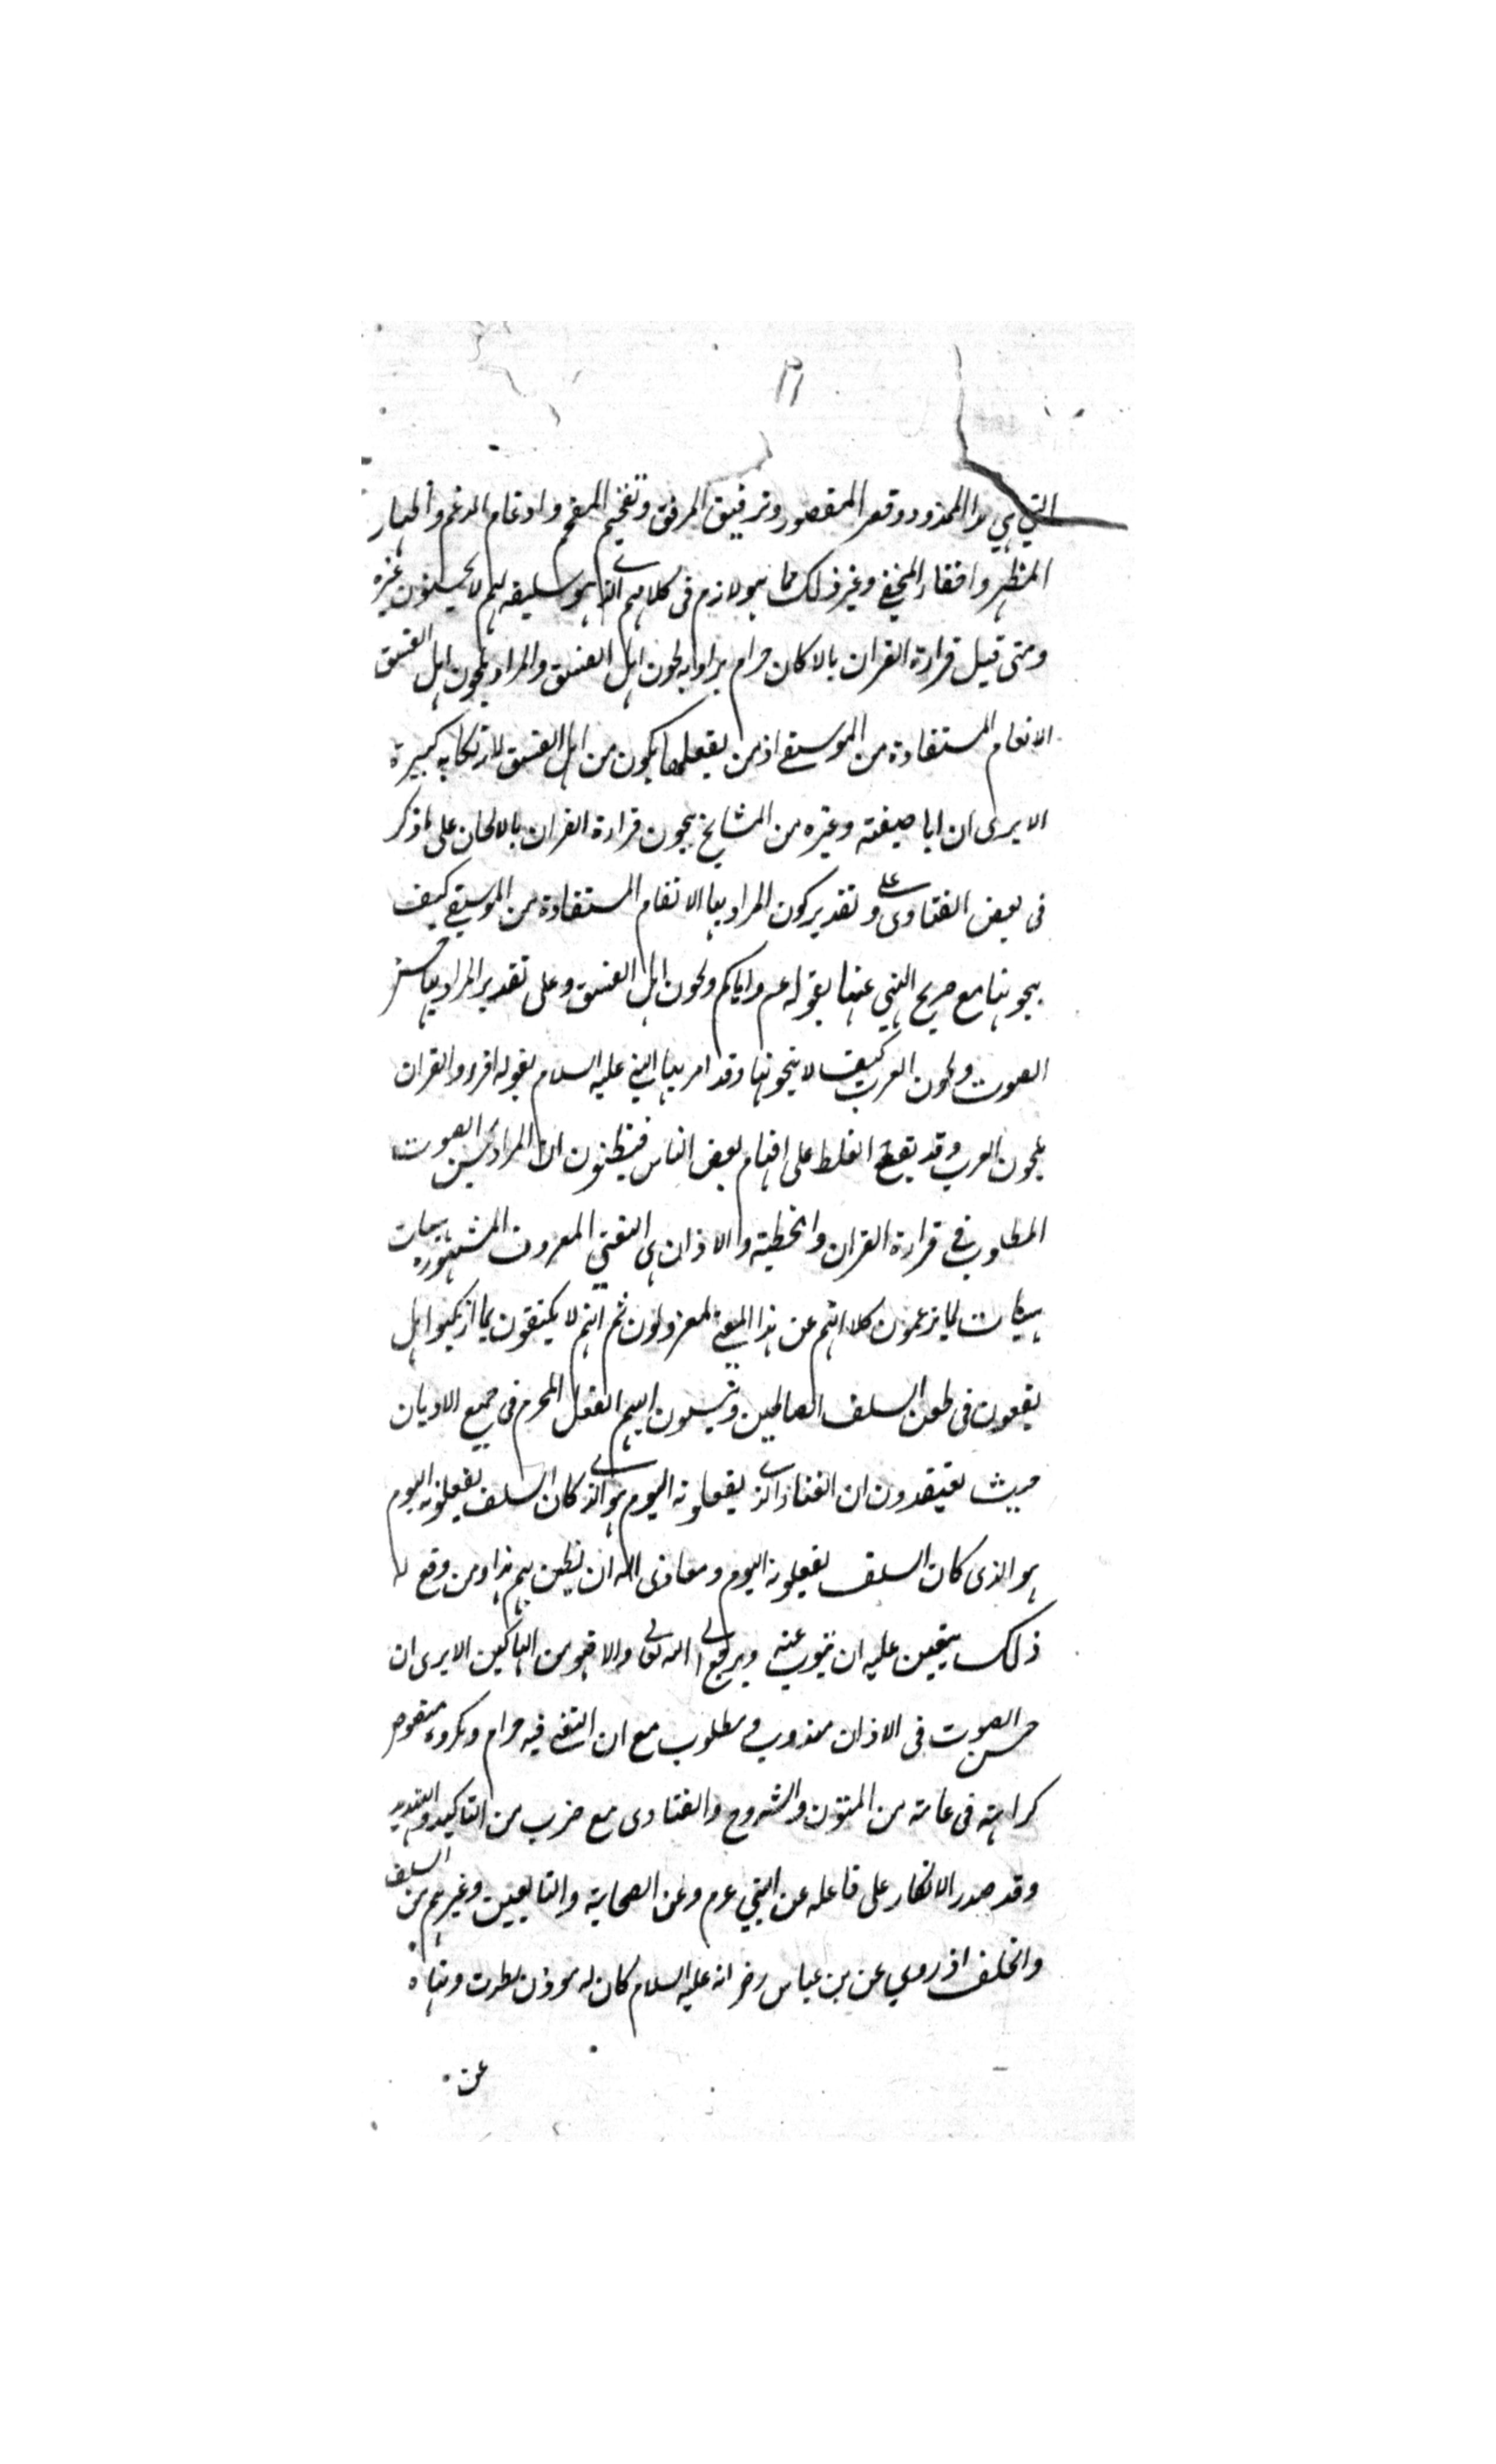 التي هي مد الممدود وقصر المقصور وترقيق المرقق وتفخيم المفخم وادغام المدغم واظهار
المظهر واخفاء المخفي وغير ذلك مما هو لازم في كلامهم الذي هو سليقه لهم لا يحسنون غيره
ومتى قيل قراءة القران بالالحان حرام يراد به لحون اهل الفسق والمراد بلحون اهل الفسق
الانغام المستفادة من الموسيقى اذ من يفعلها يكون من اهل الفسق لارتكابه كبيرة
الا يرى ان ابا حنيفة وغيره من المشايخ يجوزون قراءة القران بالالحان على ما ذكر
في بعض الفتاوى وعلى تقدير كون المراد بها الانغام المستفادة من الموسيقى كيف
يجوزنها مع صريح النهي عنها بقوله عم واياكم ولحون اهل الفسق وعلى تقدير المراد بها حسن
الصوت ولحون العرب كيف لا يجوزنها وقد امر بها النبي عليه السلام بقوله اقرؤا القران
بلحون العرب وقد يقع الغلط على افهام بعض الناس فيظنون ان المراد بحسن الصوت
المطلوب في قراءة القران والخطبة والاذان هي التغني المعروف المشهور هيهات
هيهات لما يزعمون كلا انهم عن هذا المعنى لمعزولون ثم انهم لا يكتفون بما ارتكبوا بل
يقعون في طعن السلف الصالحين وينسبون اليهم الفعل المحرم في جميع الاديان
حيث يعتقدون ان الغناء الذي يفعلونه اليوم هو الذي كان السلف يفعلونه اليوم
هو الذي كان السلف يفعلونه اليوم ومعاذ الله ان يظن بهم هذا ومن وقع له
ذلك يتعين عليه ان يتوب عنه ويرجع الى الله تعالى والا فهو من الهالكين الا يرى ان
حسن الصوت في الاذان مندوب ومطلوب مع ان التغني فيه حرام ومكروه منصوص
كراهته في عامة من المتون والشروح والفتاوى مع ضرب من التاكيد والتهديد
وقد صدر الانكار على فاعله عن النبي عم وعن الصحابة والتابعين وغيرهم من السلف
والخلف اذ روي عن بن عباس رضي انه عليه السلام كان له موذن يطرب ونهاه
عن